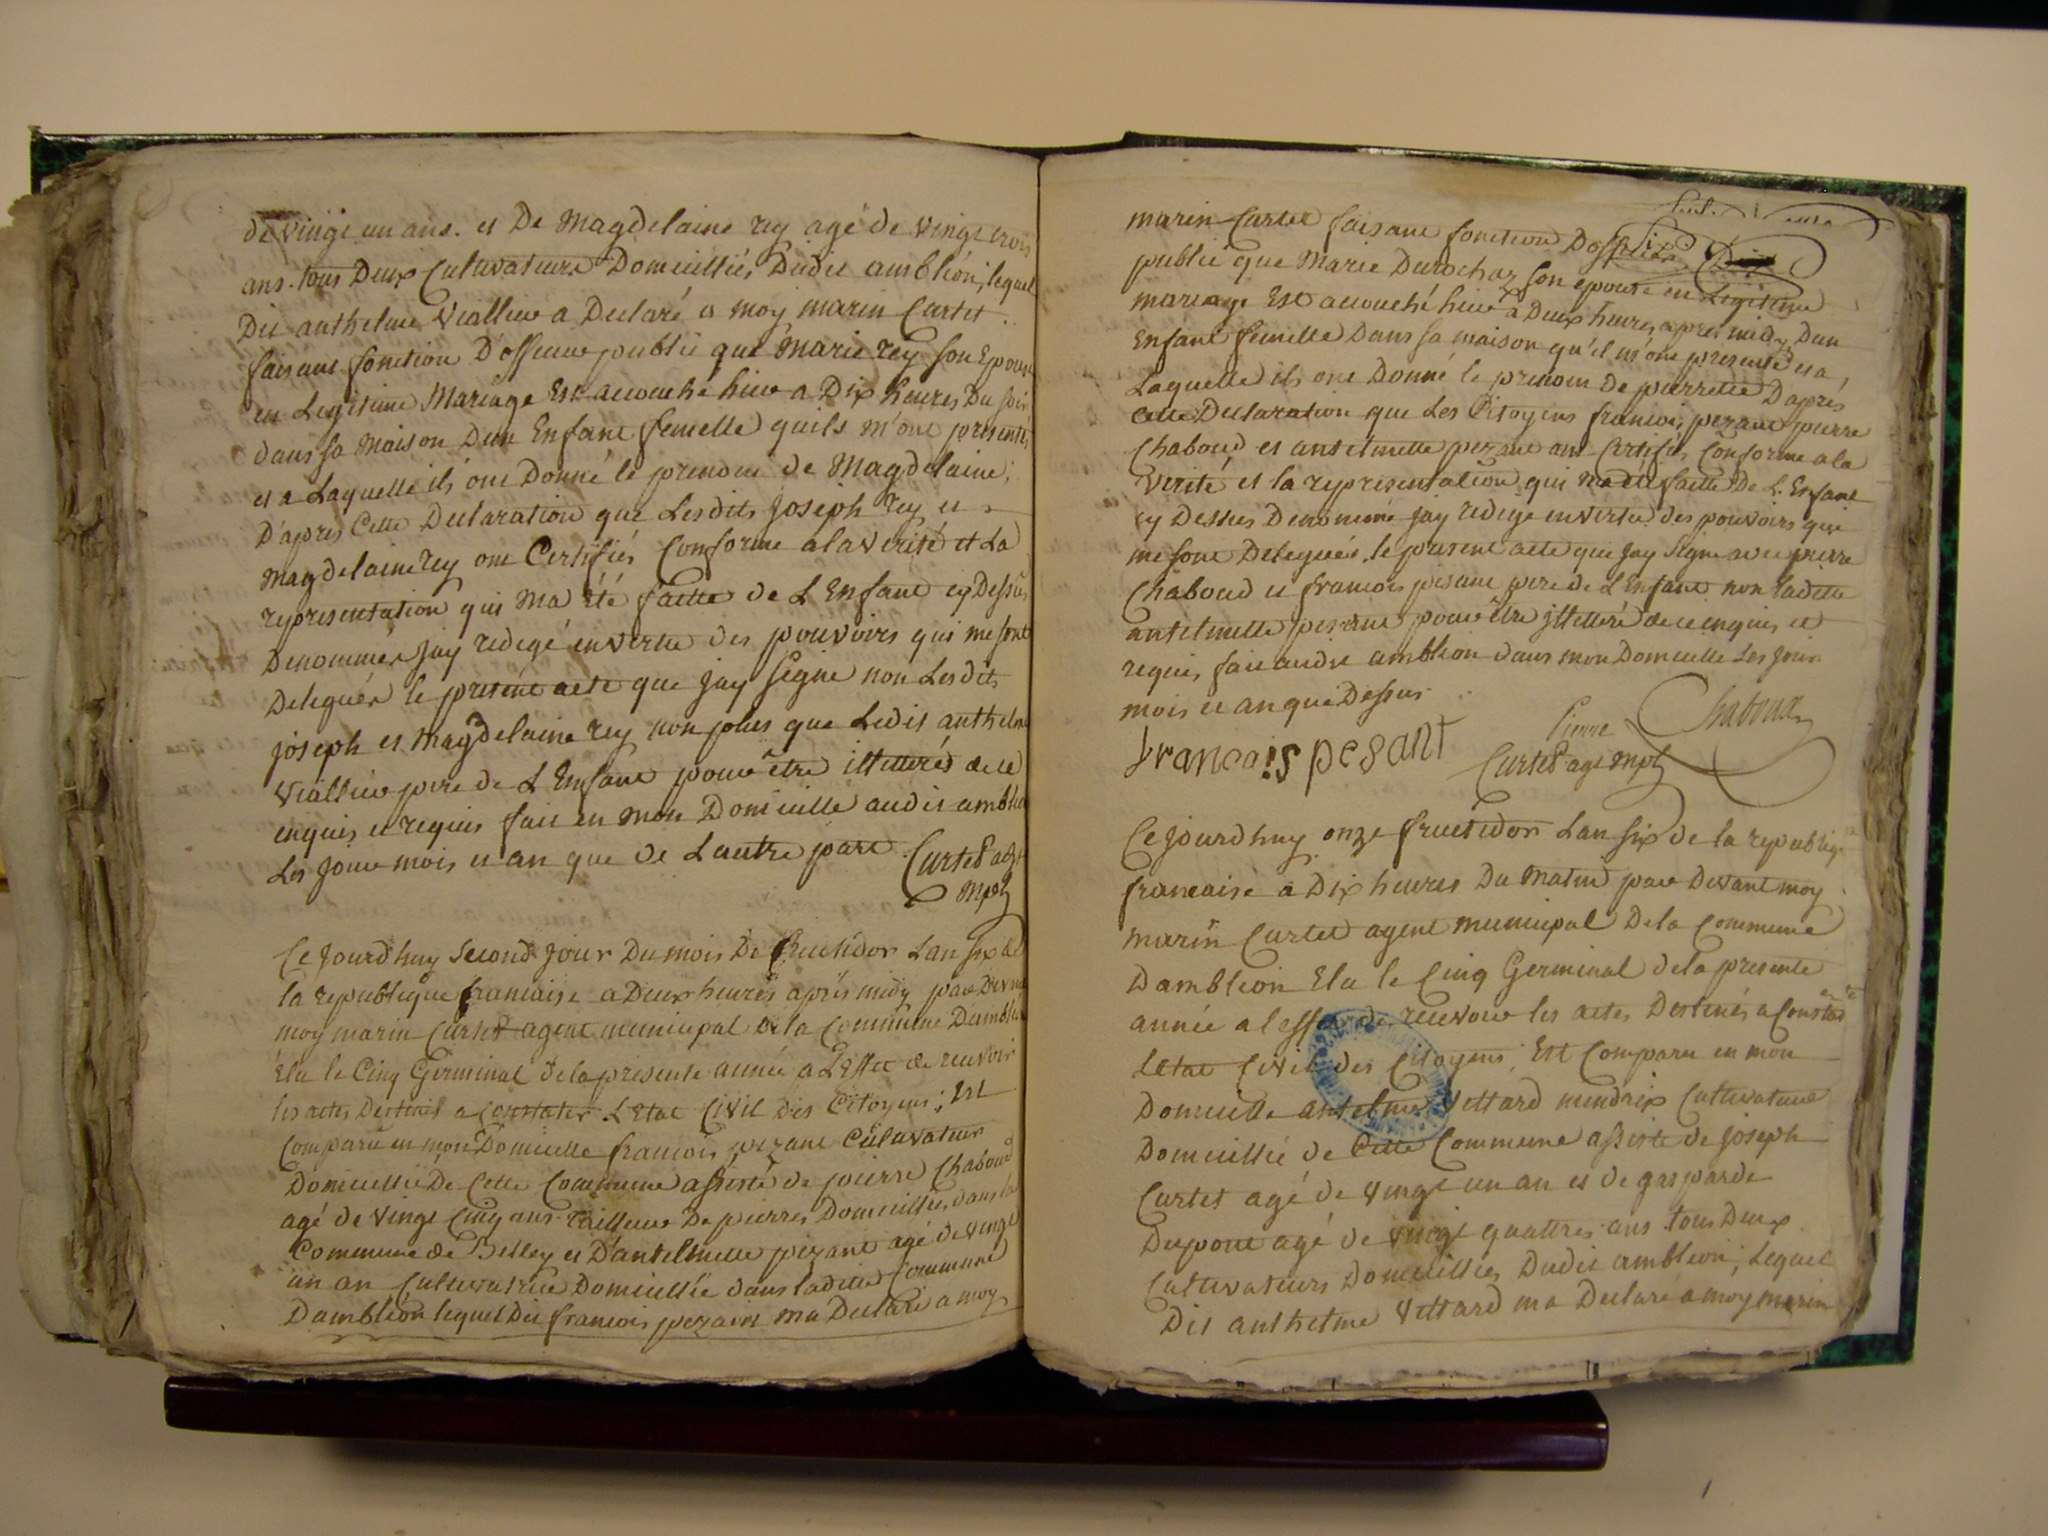 de vingt un ans. et De Magdelaine rey agé de vingt trois
ans. tous Deux Cultivateurs Domicilliés Dudit amblión; lequel
Dit anthelme Viallieu a Declaré a moy marin Curtet
faisant fonction D'officier publié que Marie rey son Epouse
en Legitime Mariage Est accouché hier a Dix heures Du soir
dans sa Maison Dun Enfant femelle quils m'ont presenté,
et a Laquelle ils ont Donné le prenom de Magdelaine;
D'apres Cette Declaration que Lesdits joseph rey et
Magdelaine rey ont Certifiés Conforme a la verité et La
representation qui Ma été faitte de L Enfant cy Dessus
Denommée jay redegé en vertu des pouvoirs qui me sont
Delegués le present acte que jay signe non Lesdits
joseph et Magdelaine rey non plus que Ledit anthelme
Viallieu pere de L Enfant pour être illetterés de ce
enquis et requis fait en mon Domicille audit amblion
Les Jour mois et an que de L autre part. Curtet agt
mpl
Ce Jourd huy second jour Du mois De fructidor Lan six de
la republique francaise a Deux heures aprés midy par Devant
moy marin Curtet agent municipal de la Commune Damblion
Élu le Cinq Germinal de la presente année a L Effet de recevoir
les actes Destinés a Constater L Etat Civil des Citoyens; Est
Comparu en mon Domicille francois pezant Cultivateur
Domicillié De Cette Commune assisté de pierre Chaboud
agé de vingt Cinq ans Tailleur De pierres Domicilliés dans la
Commune de Belley et D'antelmette pezant agé de vingt
un an Cultivatrice Domicilliée dans ladite Commune
Damblion lequel Dit francois pezant ma Declaré a moy
marin Curtet faisant fonction Dofficier
publié que Marie Durochaz son epouse en Legitime
mariage Est accouché hier a Deux heures apres midy Dun
Enfant femelle Dans sa maison qu'il m'ont presenté et a
Laquelle ils ont Donné le prenom de pierrette D'apres
Cette Declaration que Les Citoyens francois pezant pierre
Chaboud et antelmette pezant ont Certifiés Conforme a la
verité et la representation qui ma été faitte De L. Enfant
cy Dessus Denommé jay redegé en vertu des pouvoirs qui
me sont Delegués le present acte que jay Signe avec pierre
Chaboud et francois pesant pere de L Enfant non ladite
antelmette pesant pour être jlletteré de ce enquis et
requis fait audit amblion dans mon Domicille Les Jour
mois et an que Dessus.
francais pesant Pierre Chaboud
Curtet agt mpl
Ce jourd huy onze fructidor Lan six de la republiq
francaise a Dix heures Du Matin par Devant moy
marin Curtet agent municipal De la Commune
D amblion Elu le Cinq Germinal de la presente
année a l effet de recevoir les actes Destinés a Constater
L Etat Civil des Citoyens; Est Comparu en mon
Domicille antelme Vettard mendrix Cultivateur
Domicillié de Cette Commune assisté de joseph
Curtet agé de vingt un an et de gasparde
Dupont agé de vingt quattres ans tous Deux
Cultivateurs Domicilliés Dudit amblion; Lequel
Dit anthelme Vettard ma Declaré a moy marin